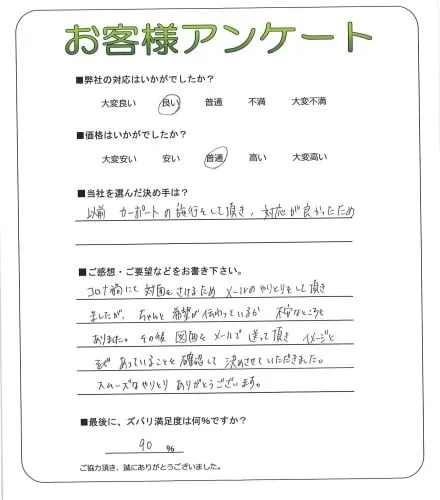 お客様アンケート
■弊社の対応はいかがでしたか?
大変良い 良い 普通 不満 大変不満
■価格はいかがでしたか?
大変安い 安い 普通 高い 大変高い
■当社を選んだ決め手は?
以前 カーポートの施行をして頂き、対応が良かったため
■ご感想・ご要望などをお書き下さい。
コロナ禍にて 対面をさけるため メールのやりとりをして頂き
ましたが、ちゃんと 希望が伝わっているか なところも
ありました。その後 図面をメールで 送って頂き イメージと
あっていることを確認して 決めさせていただきました。
スムーズなやりとり ありがとうございます。
■最後に、ズバリ満足度は何%ですか?
90 %
ご協力頂き、誠にありがとうございました。